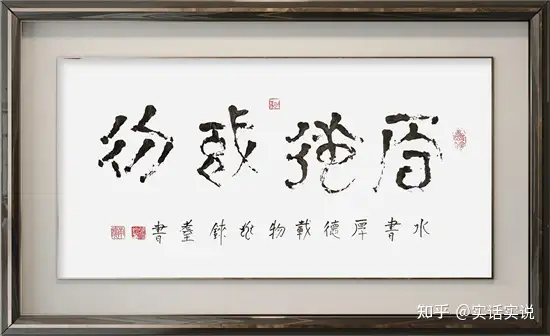 厚德載物
水書厚德載物臺書
知乎 @实话实说